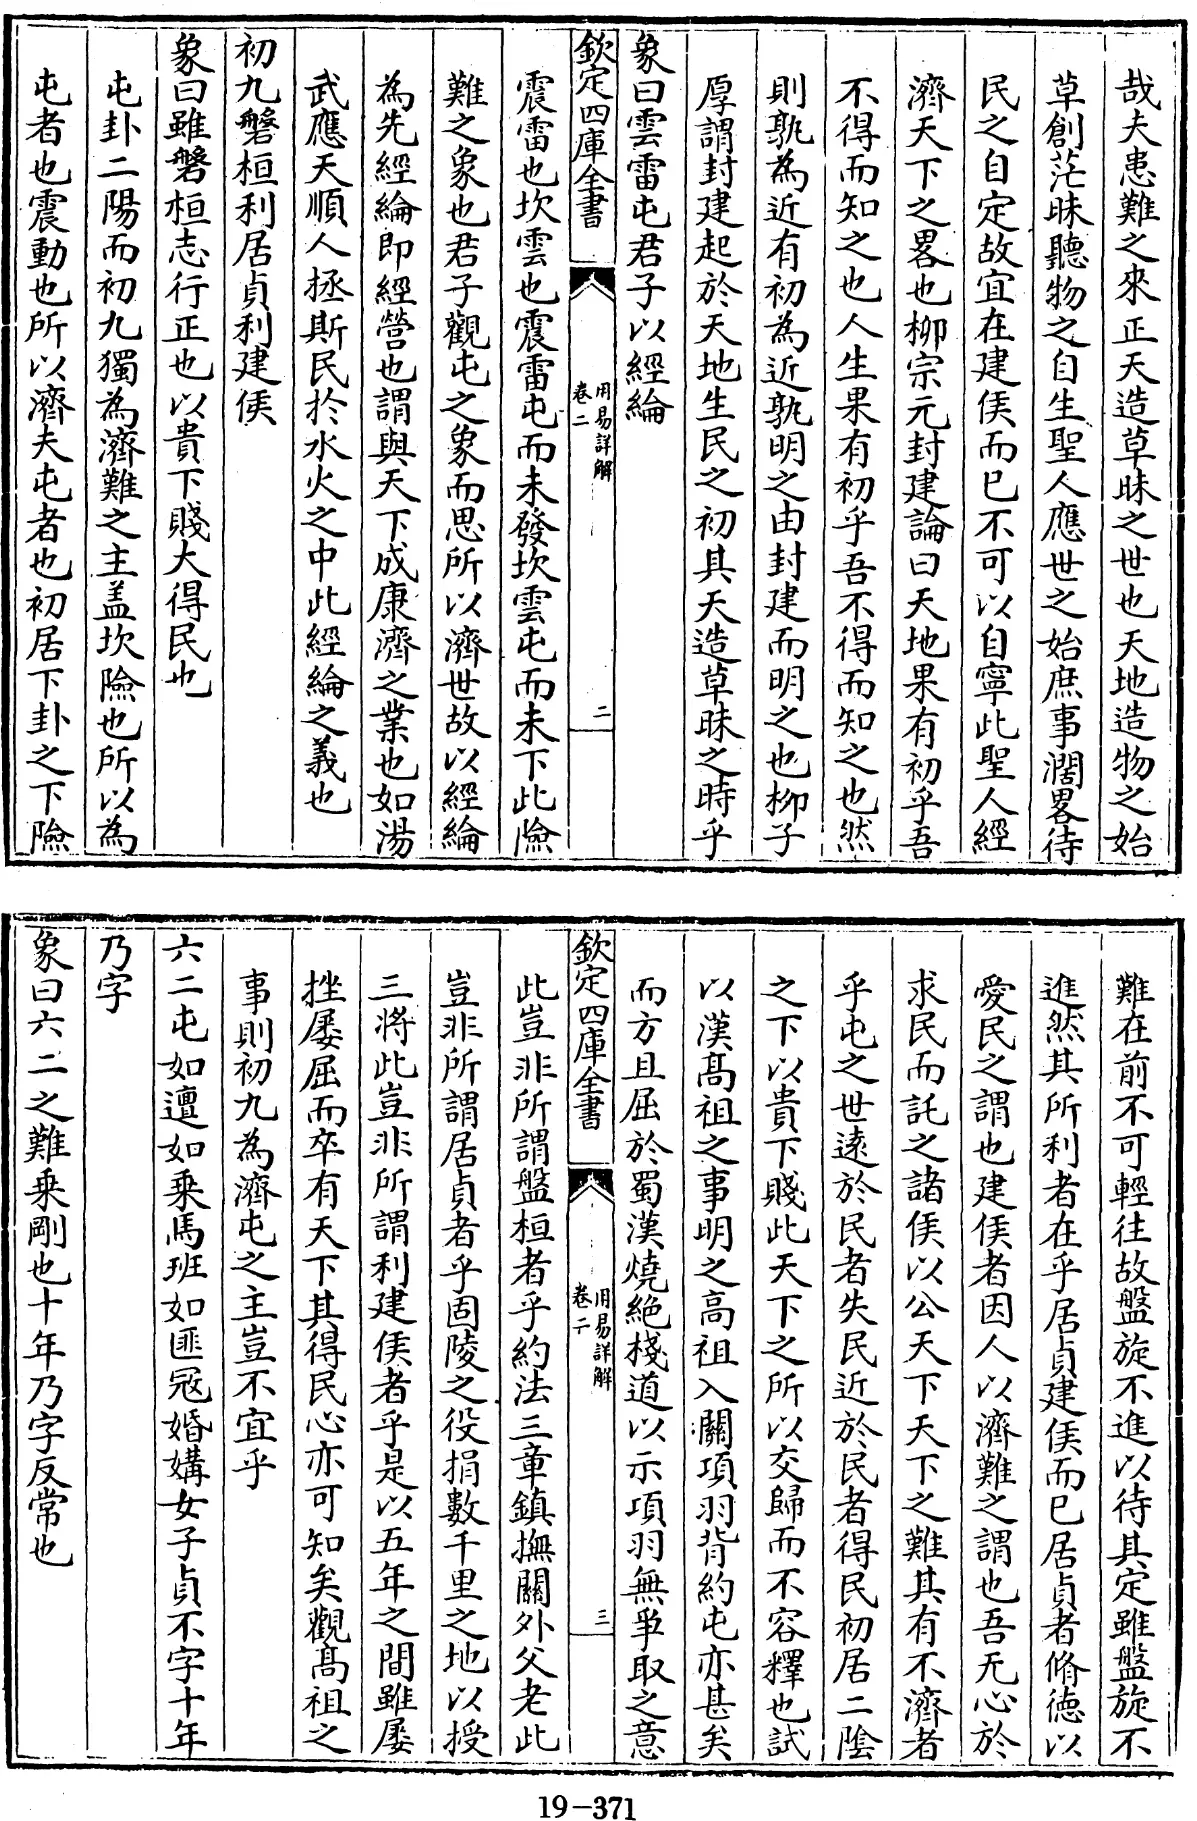 哉夫患難之來正天造草昧之世也天地造物之始
草創茫昧聽物之自生聖人應世之始庶事濶畧待
民之自定故宜在建侯而已不可以自寧此聖人經
濟天下之畧也栁宗元封建論曰天地果有初乎吾
不得而知之也人生果有初乎吾不得而知之也然
則孰為近有初為近孰明之由封建而明之也栁子
厚謂封建起於天地生民之初其天造草昧之時乎
象曰雲雷屯君子以經綸
欽定四庫全書
用易詳解
卷二
二
震雷也坎雲也震雷屯而未發坎雲屯而未下此險
難之象也君子觀屯之象而思所以濟世故以經綸
為先經綸即經營也謂與天下成康濟之業也如湯
武應天順人拯斯民於水火之中此經綸之義也
初九磐桓利居貞利建侯
象曰雖磐桓志行正也以貴下賤大得民也
屯卦二陽而初九獨為濟難之主盖坎險也所以為
屯者也震動也所以濟夫屯者也初居下卦之下險
難在前不可輕往故盤旋不進以待其定雖盤旋不
進然其所利者在乎居貞建侯而已居貞者脩德以
愛民之謂也建侯者因人以濟難之謂也吾无心於
求民而託之諸侯以公天下天下之難其有不濟者
乎屯之世逺於民者失民近於民者得民初居二陰
之下以貴下賤此天下之所以交歸而不容釋也試
以漢髙祖之事明之高祖入關項羽背約屯亦甚矣
而方且屈於蜀漢燒絶棧道以示項羽無爭取之意
欽定四庫全書
用易詳解
卷二
三
此豈非所謂盤桓者乎約法三章鎮撫關外父老此
豈非所謂居貞者乎固陵之役捐數千里之地以授
三將此豈非所謂利建侯者乎是以五年之間雖屡
挫屡屈而卒有天下其得民心亦可知矣觀髙祖之
事則初九為濟屯之主豈不宜乎
六二屯如邅如乘馬班如匪寇婚媾女子貞不字十年
乃字
象曰六二之難乘剛也十年乃字反常也
19-371